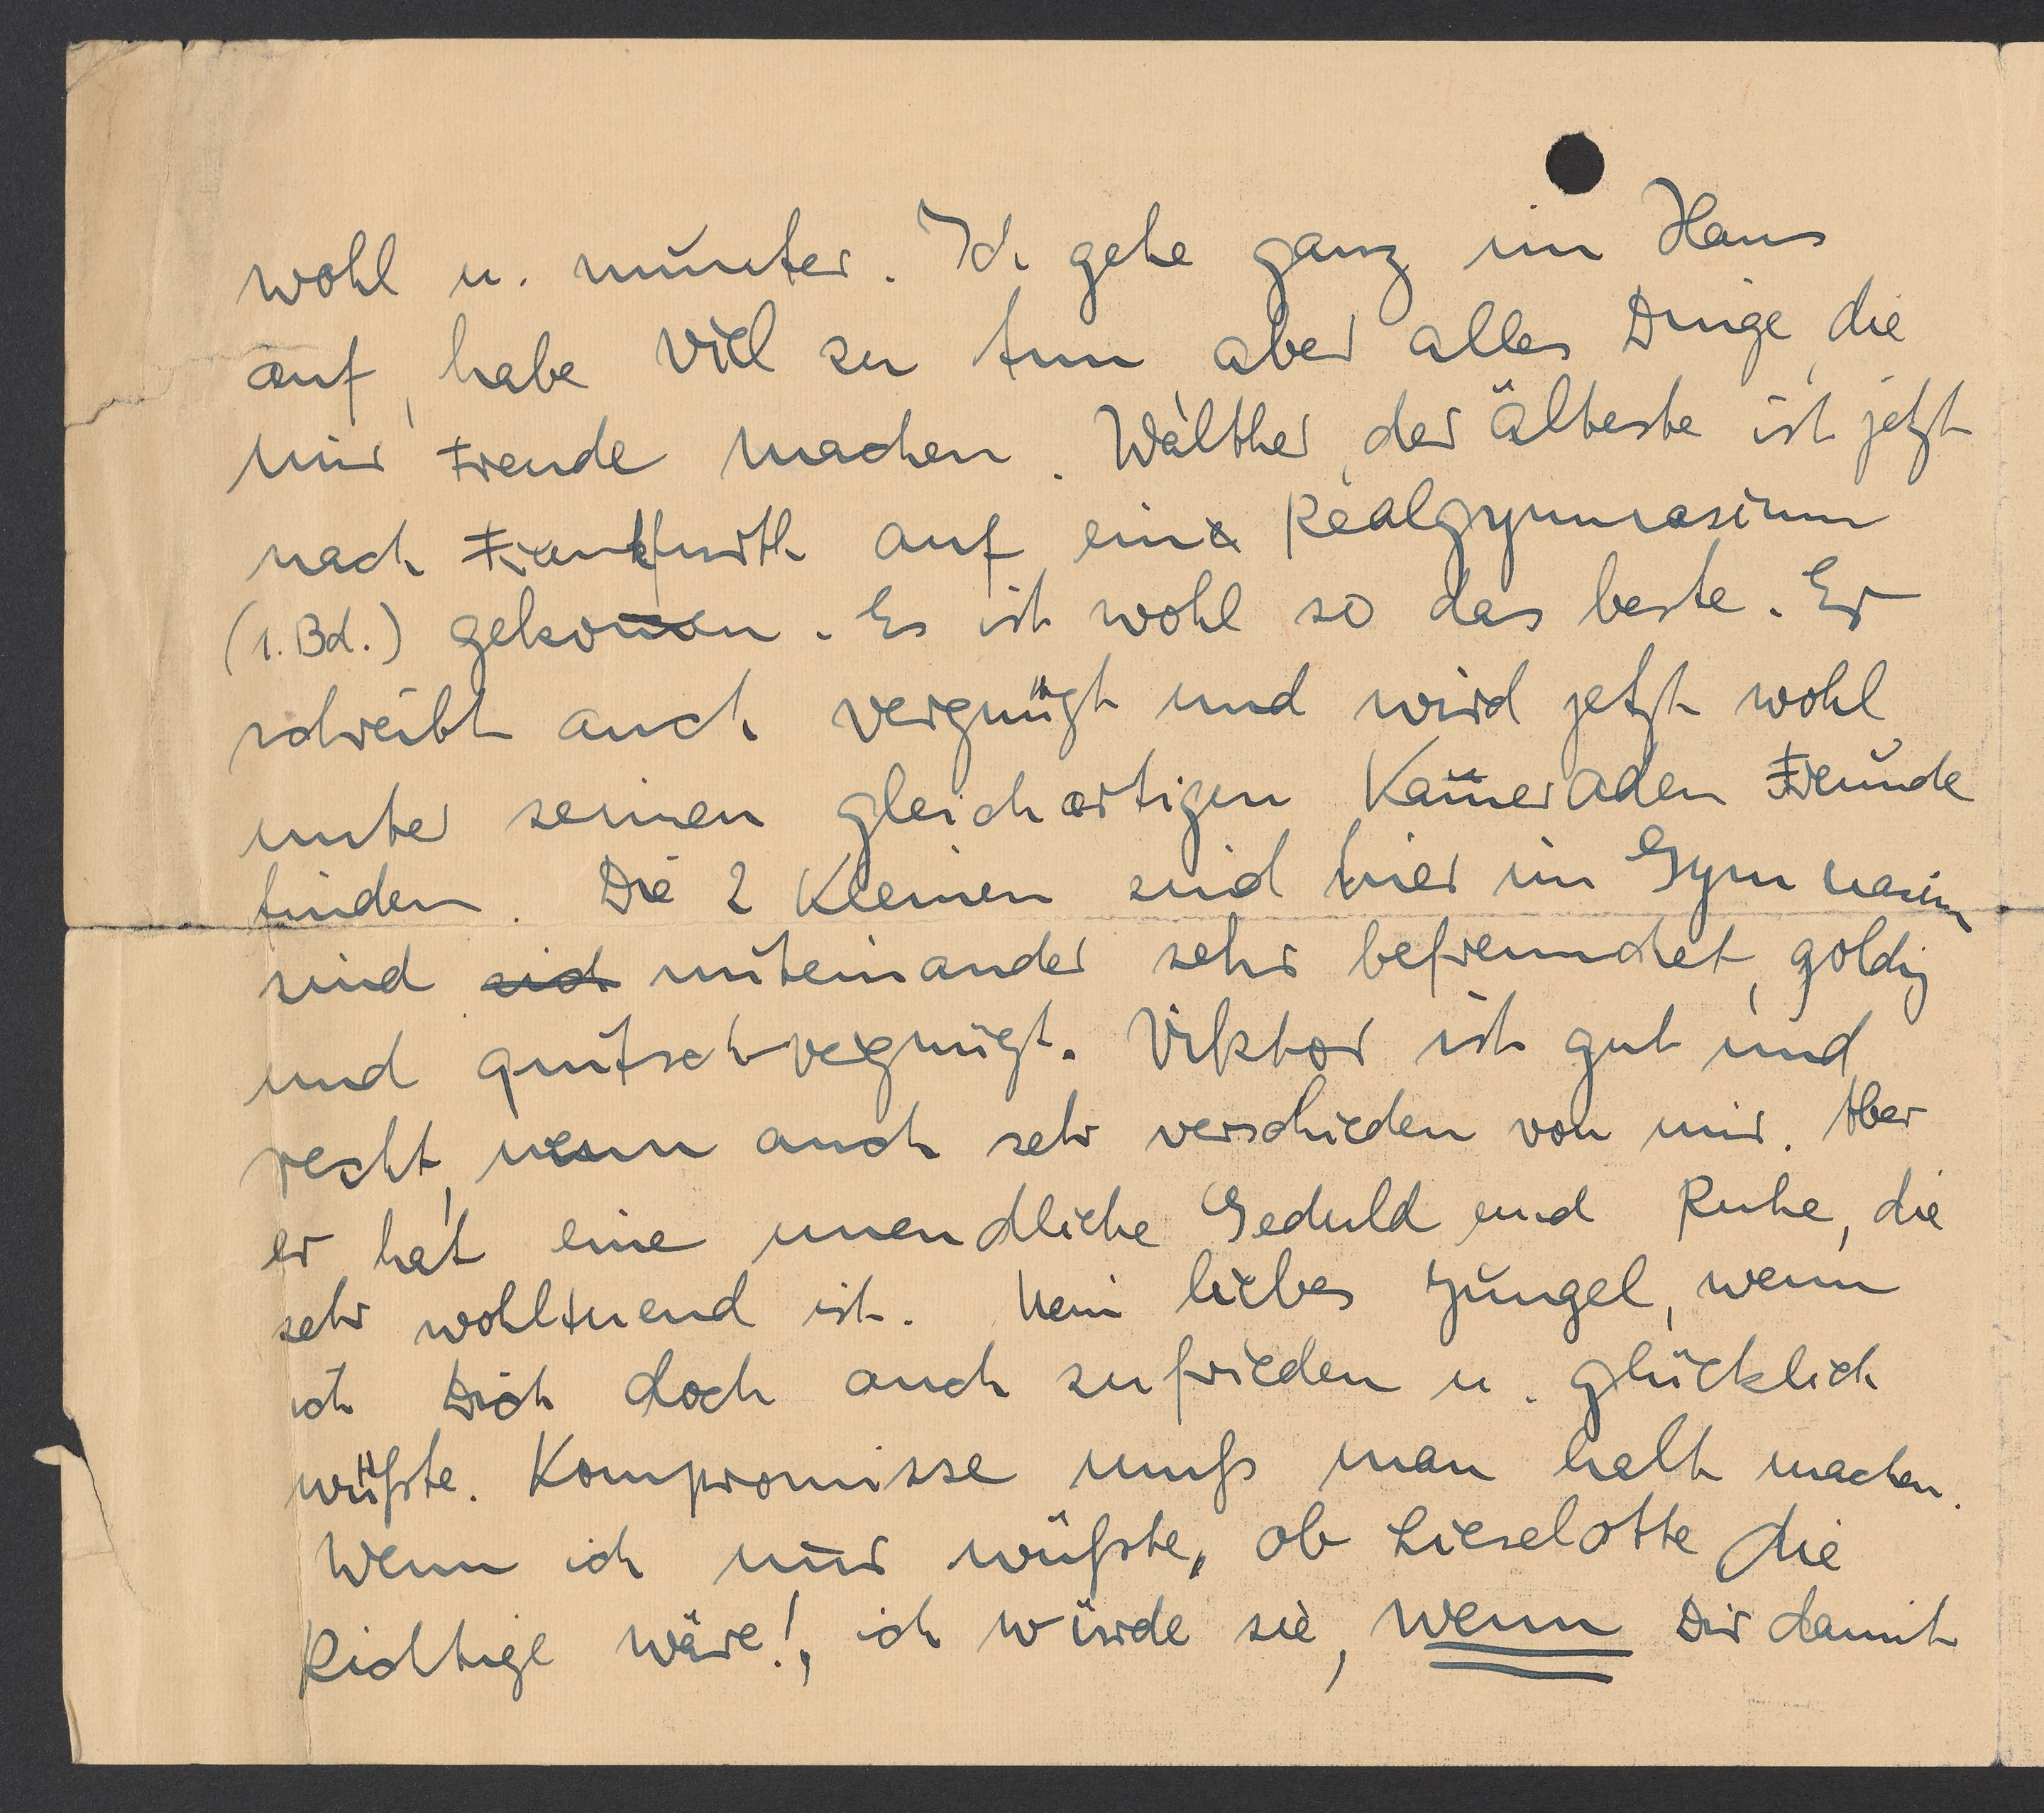 wohl u. munter. Ich gehe ganz im Haus
auf, habe viel zu tun aber alles Dinge, die
mir Freude machen. Walther, der älteste ist jetzt
nach Frankfurth auf ein Realgymnasium
(i. Bd.) gekom̅en. Es ist wohl so das beste. Er
schreibt auch vergnügt und wird jetzt wohl
unter seinen gleichartigen Kam̅eraden Freunde
finden. Die 2 Kleinen sind hier im Gymnasium
sind sich miteinander sehr befreundet, goldig
und quitschvergnügt. Viktor ist gut und
recht, wenn auch sehr verschieden von mir. Aber
er hat eine unendliche Geduld und Ruhe, die
sehr wohltuend ist. Mein liebes Jungel, wenn
ich Dich doch auch zufrieden u. glücklich
wüßte. Kompromisse muß man halt machen.
Wenn ich nur wüßte, ob Lieselotte die
Richtige wäre!, ich würde sie, wenn Dir damit